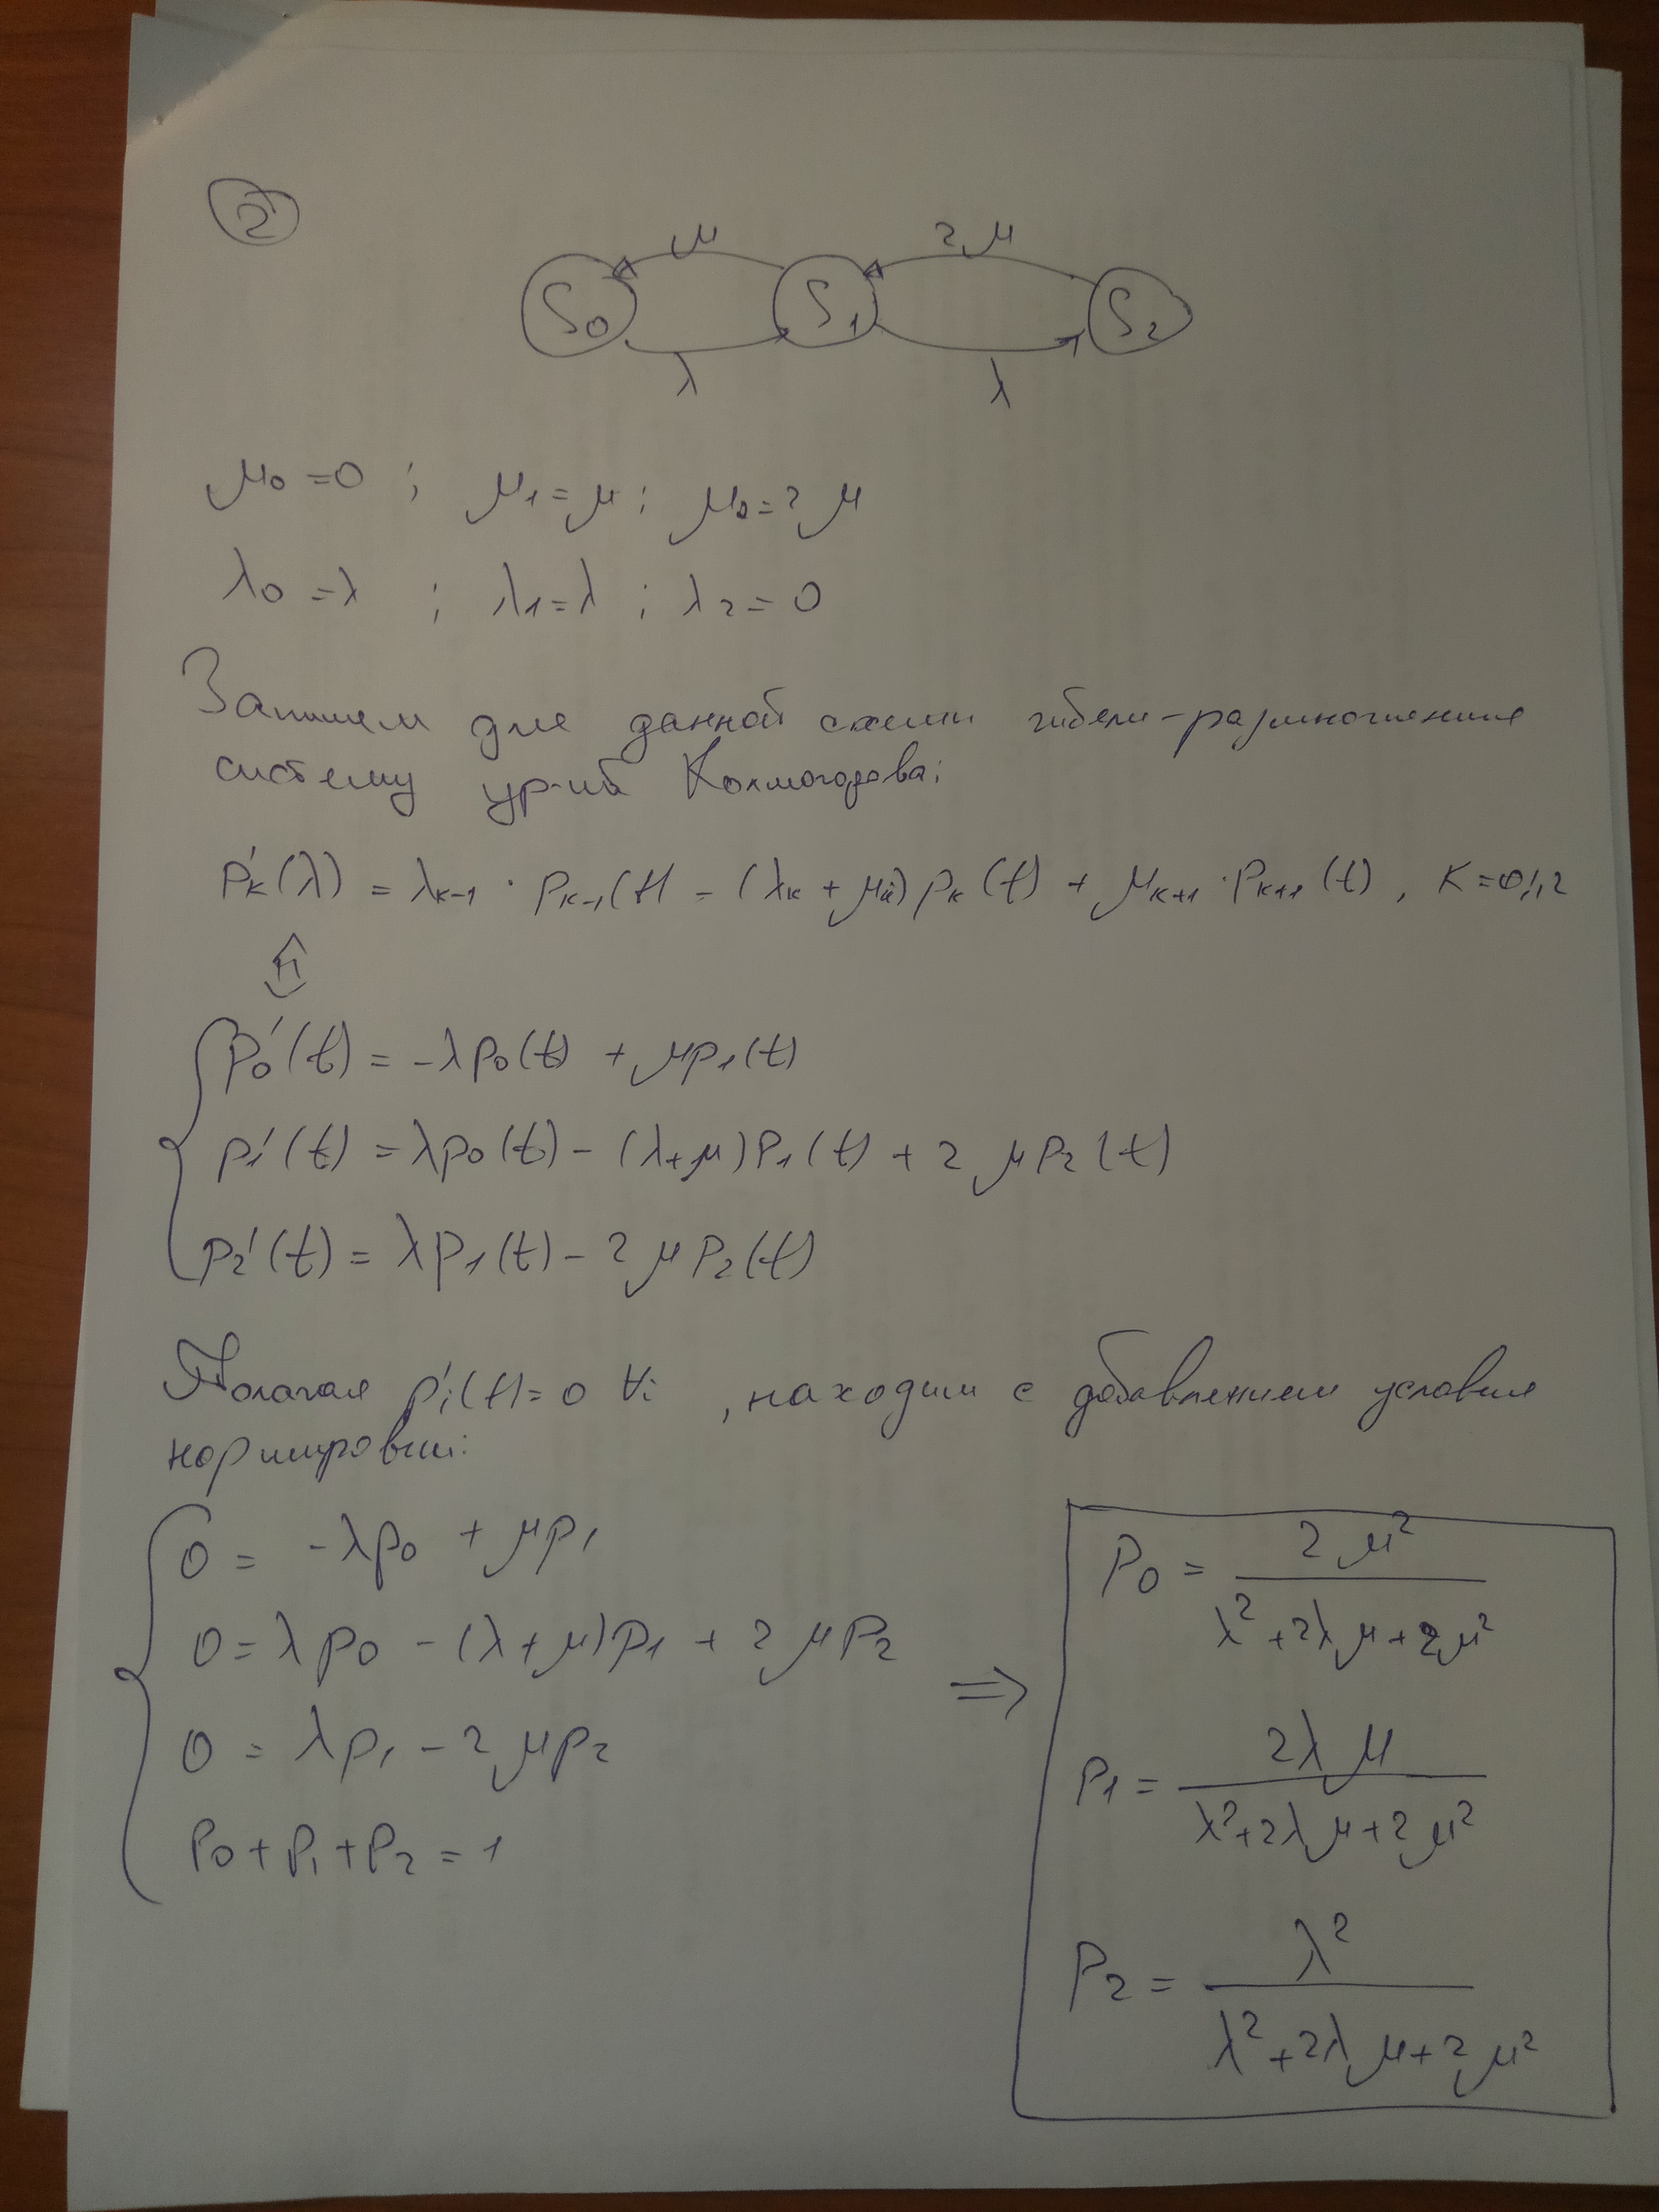 2
μ 2μ
S₀ S₁ S₂
λ λ
μ₀ = 0 ; μ₁ = μ ; μ₂ = 2μ
λ₀ = λ ; λ₁ = λ ; λ₂ = 0
Запишем для данной схемы гибели-размножения
систему ур-ий Колмогорова:
P'ₖ(λ) = λₖ₋₁ · Pₖ₋₁(t) - (λₖ + μₖ) pₖ(t) + μₖ₊₁ · Pₖ₊₁(t), K = 0,1,2
⇕
p₀'(t) = -λp₀(t) + μp₁(t)
p₁'(t) = λp₀(t) - (λ+μ)P₁(t) + 2μP₂(t)
p₂'(t) = λp₁(t) - 2μP₂(t)
Полагая p'ᵢ(t) = 0 ∀i , находим с добавлением условия
нормировки:
0 = -λp₀ + μp₁
0 = λp₀ - (λ+μ)p₁ + 2μP₂
0 = λp₁ - 2μp₂
P₀ + P₁ + P₂ = 1
⇒
P₀ = 2μ² / (λ² + 2λμ + 2μ²)
P₁ = 2λμ / (λ² + 2λμ + 2μ²)
P₂ = λ² / (λ² + 2λμ + 2μ²)